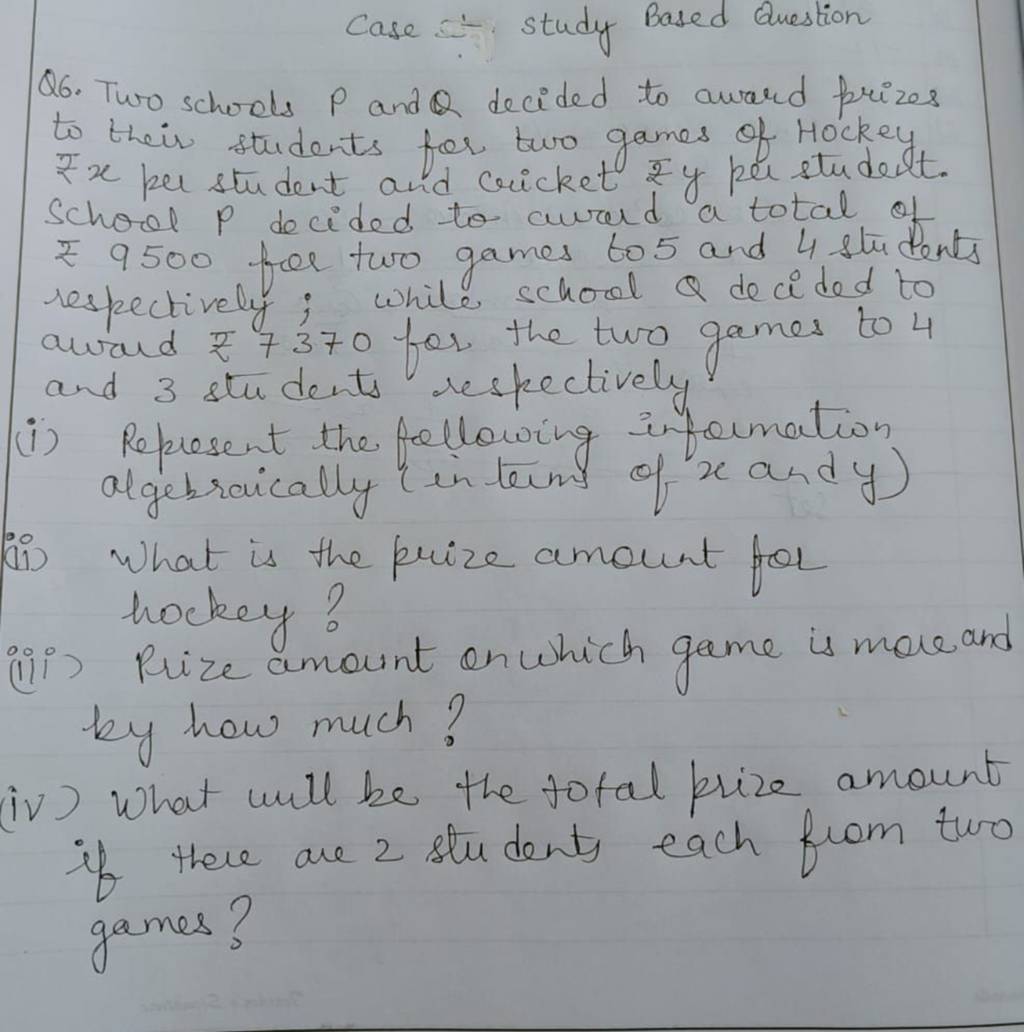 Case study Based Question
Q6. Two schools P and Q decided to award prizes
to their students for two games of Hockey
₹ x per student and cricket ₹ y per student.
School P decided to award a total of
₹ 9500 for two games to 5 and 4 students
respectively; while school Q decided to
award ₹ 7370 for the two games to 4
and 3 students respectively.
(i) Represent the following information
algebraically (in terms of x and y)
(ii) What is the prize amount for
hockey?
(iii) Prize amount on which game is more and
by how much?
(iv) What will be the total prize amount
if there are 2 students each from two
games?